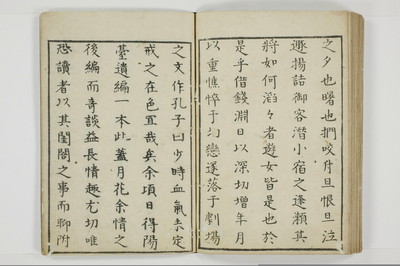 之夕也曙也捫咬月且恨且泣
遞揚詰御客潜小宿之逢瀬其
將如何滔々者遊女皆是也於
是乎借錢淵日以深切增年月
以重憔悴于幻戀遂落于劇場
之文作孔子曰少時血氣未定
戒之在色宜哉矣余頃日得陽
臺遺編一本此蓋月花余情之
後編而奇談益長情趣尤切唯
恐讀者以其閨閤之事而聊附